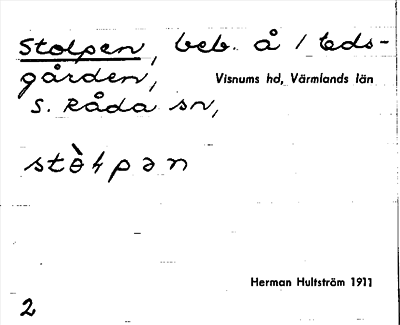 Stolpen, beb. å / Eds-
gården, Visnums hd, Värmlands län
S. Råda sn,
Herman Hultström 1911
2